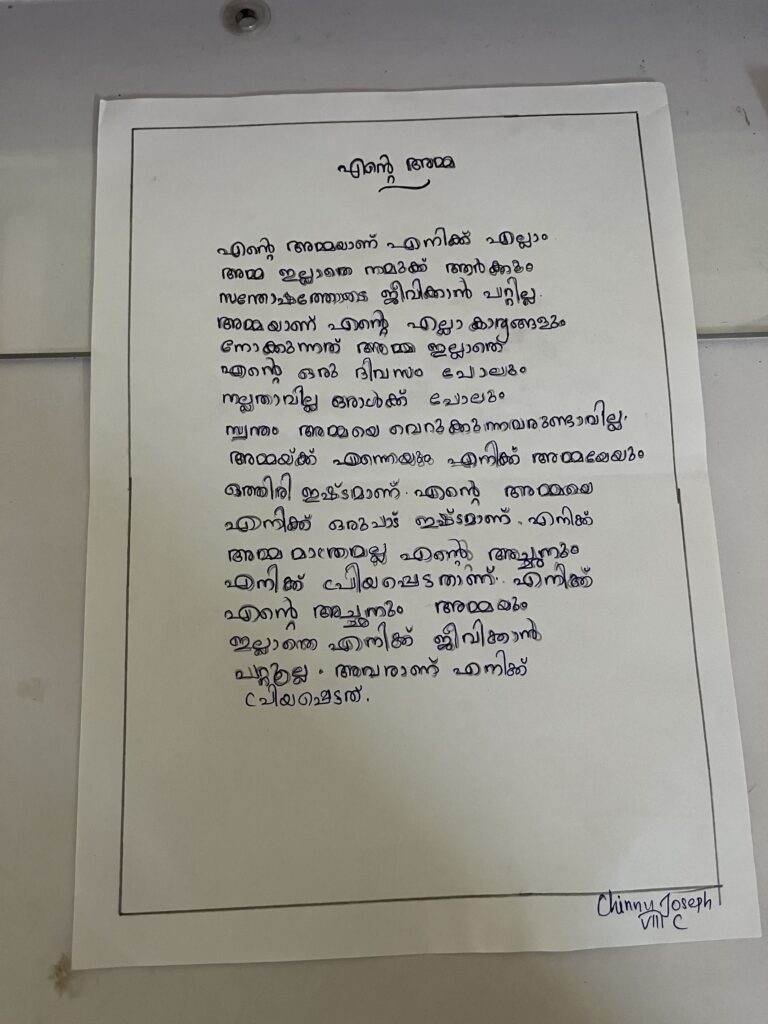 എന്റെ അമ്മ
എന്റെ അമ്മയാണ് എനിക്ക് എല്ലാം
അമ്മ ഇല്ലാതെ നമുക്ക് ആർക്കും
സന്തോഷത്തോടെ ജീവിക്കാൻ പറ്റില്ല.
അമ്മയാണ് എന്റെ എല്ലാ കാര്യങ്ങളും
നോക്കുന്നത് അമ്മ ഇല്ലാതെ
എന്റെ ഒരു ദിവസം പോലും
നല്ലതാവില്ല ഒരാൾക്ക് പോലും
സ്വന്തം അമ്മയെ വെറുക്കുന്നവരുണ്ടാവില്ല.
അമ്മയ്ക്ക് എന്നെയും എനിക്ക് അമ്മയേയും
ഒത്തിരി ഇഷ്ടമാണ്. എന്റെ അമ്മയെ
എനിക്ക് ഒരുപാട് ഇഷ്ടമാണ്. എനിക്ക്
അമ്മ മാത്രമല്ല എന്റെ അച്ഛനും
എനിക്ക് പ്രിയപ്പെടതാണ്. എനിക്ക്
എന്റെ അച്ഛനും അമ്മയും
ഇല്ലാതെ എനിക്ക് ജീവിക്കാൻ
പറ്റൂല്ല. അവരാണ് എനിക്ക്
പ്രിയപ്പെടത്.
Chinnu Joseph
VIII C